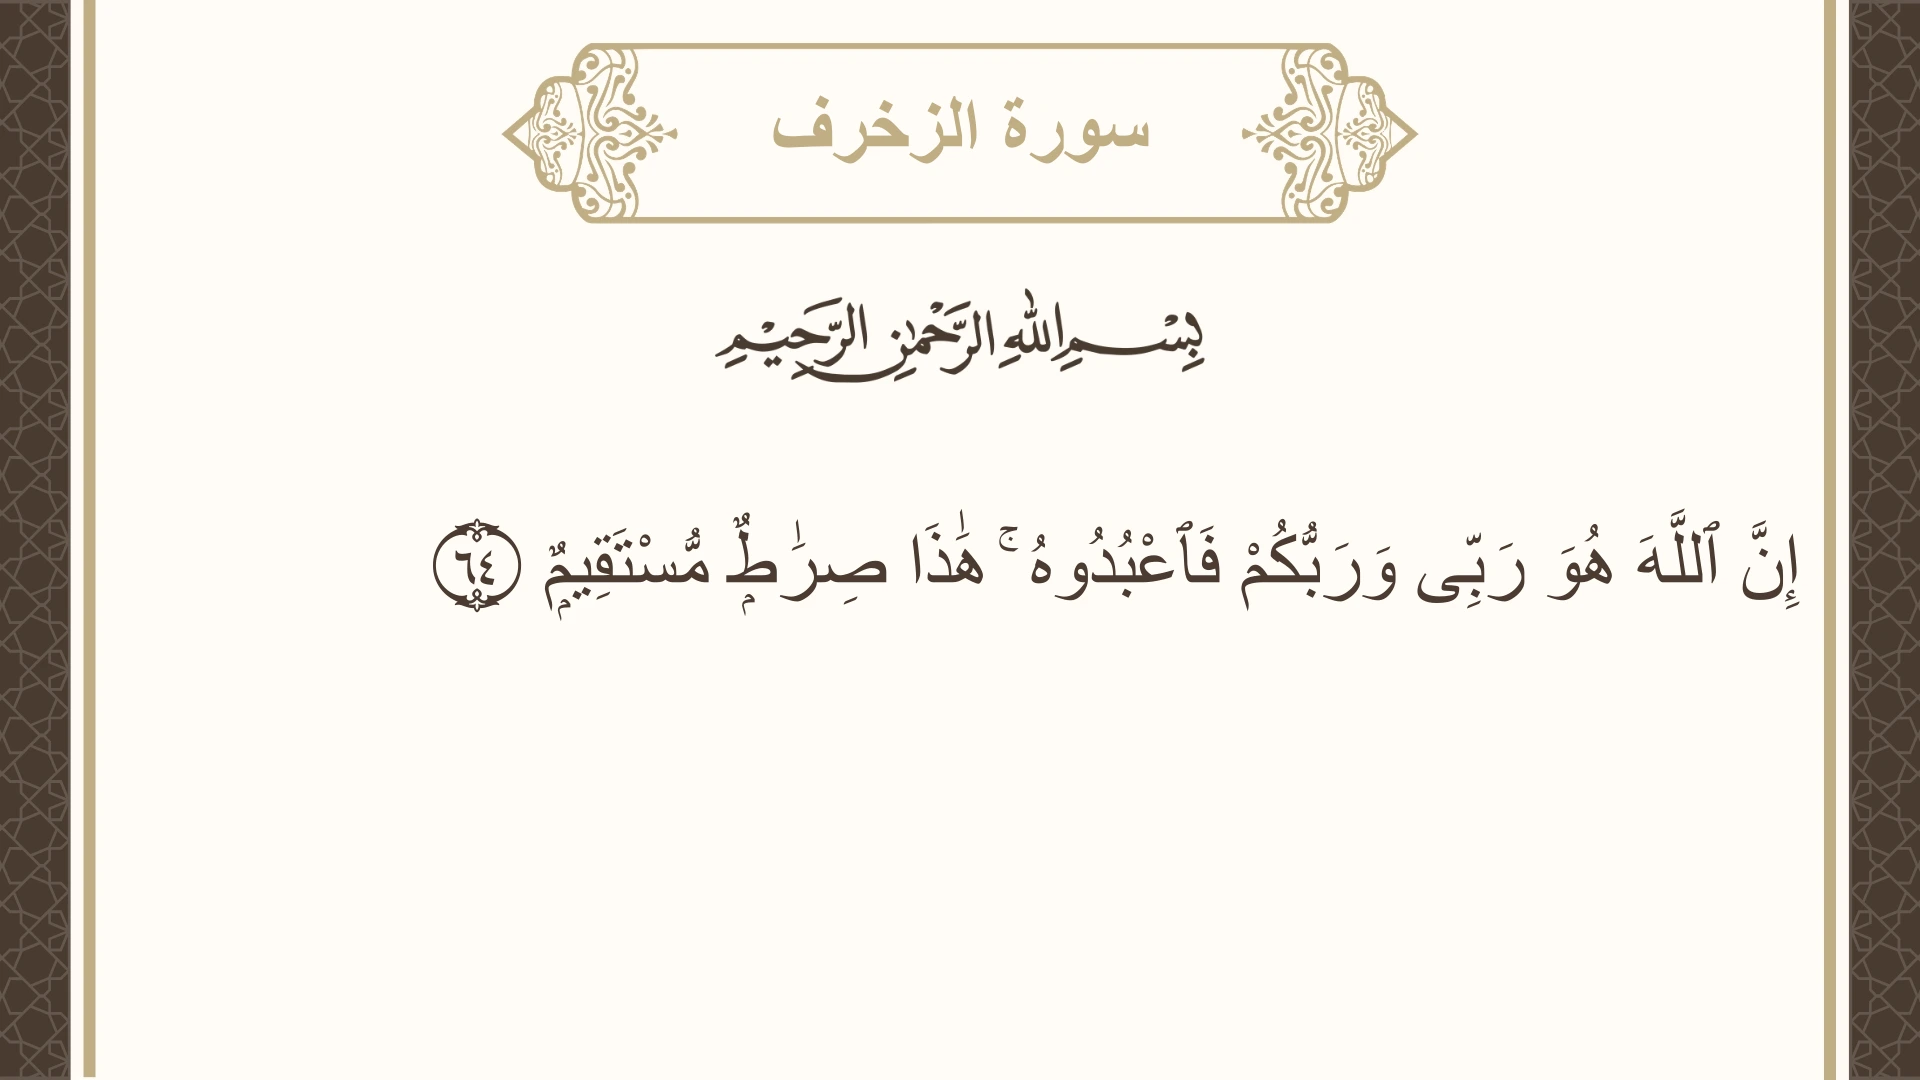 سورة الزخرف
بِسْمِ اللهِ الرَّحْمٰنِ الرَّحِيْمِ
إِنَّ ٱللَّهَ هُوَ رَبِّى وَرَبُّكُمْ فَٱعْبُدُوهُ ۚ هَٰذَا صِرَٰطٌۭ مُّسْتَقِيمٌۭ ٦٤